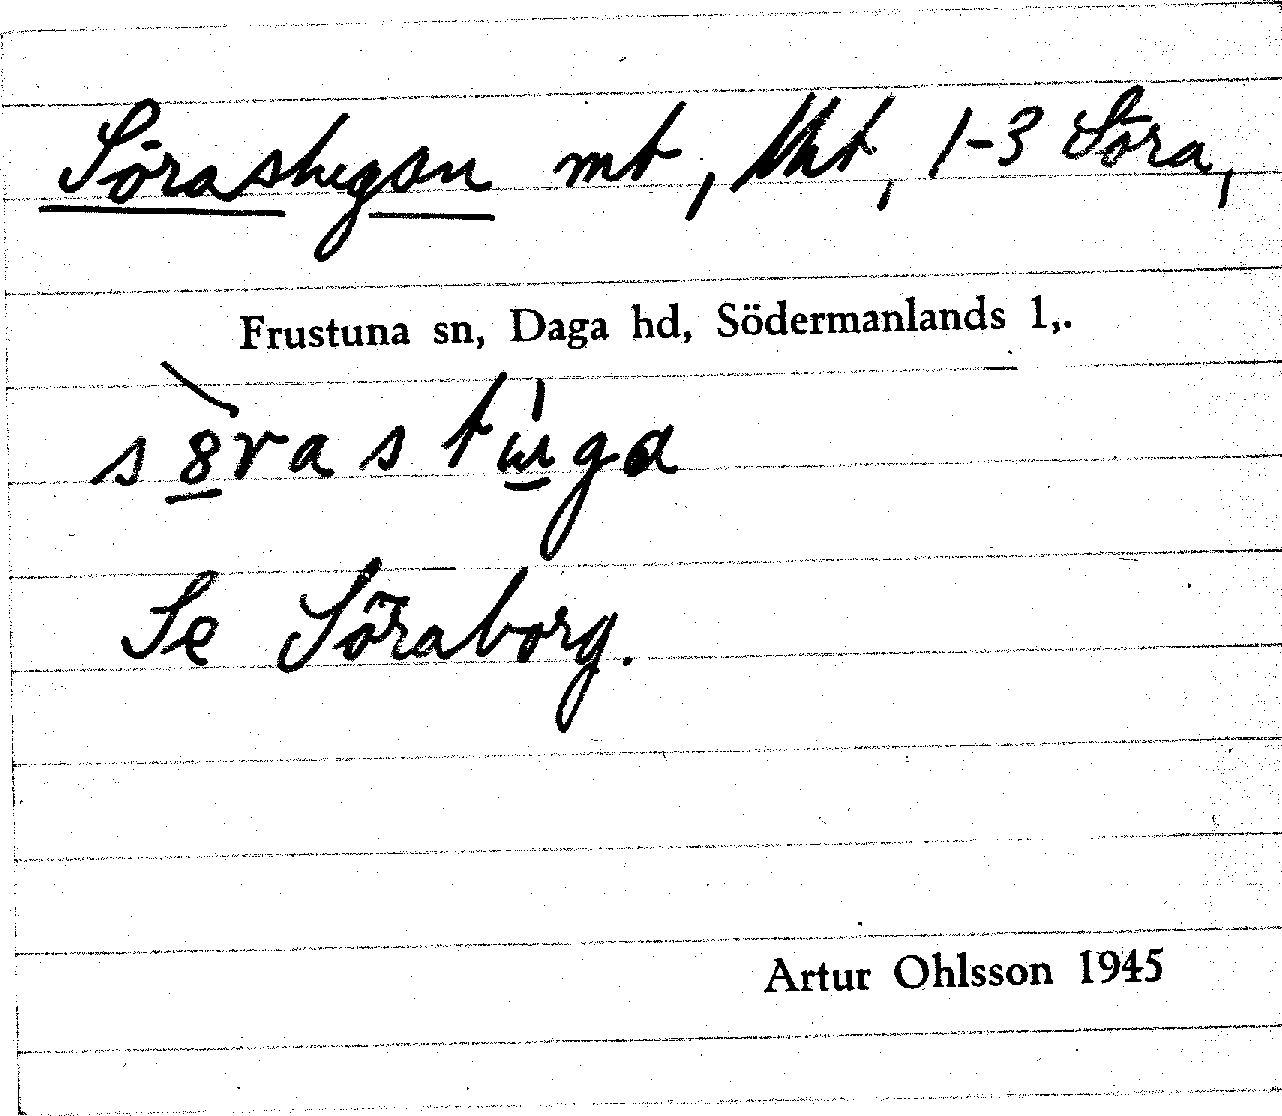 Sörastugan mt, 1-3 Söra,
Frustuna sn, Daga hd, Södermanlands l,.
s8rastɯga
Se Söraborg.
Artur Ohlsson 1945